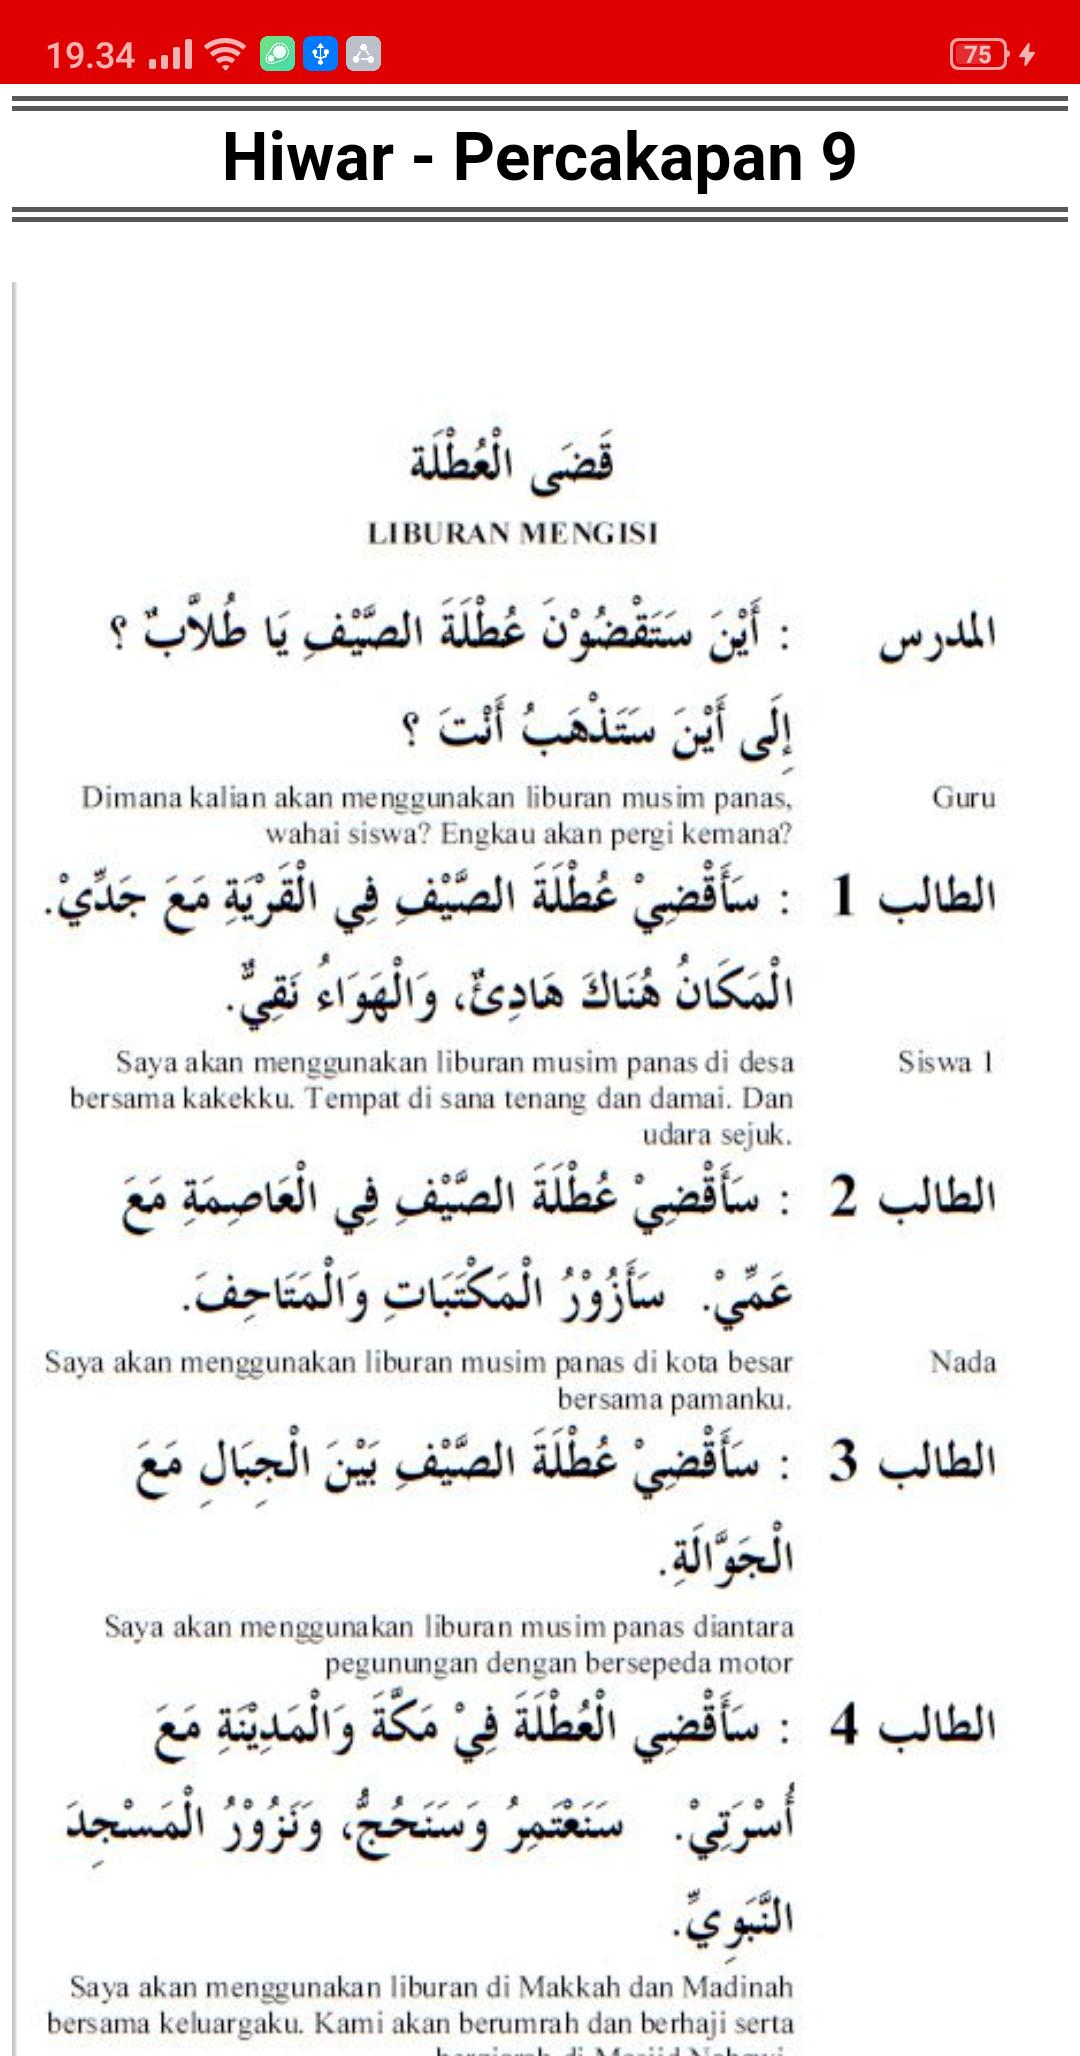 19.34
75
Hiwar - Percakapan 9
قَضَى الْعُطْلَة
LIBURAN MENGISI
المدرس : أَيْنَ سَتَقْضُوْنَ عُطْلَةَ الصَّيْفِ يَا طُلاَّبٌ ؟
إِلَى أَيْنَ سَتَذْهَبُ أَنْتَ ؟
Dimana kalian akan menggunakan liburan musim panas, Guru
wahai siswa? Engkau akan pergi kemana?
الطالب 1 : سَأَقْضِيْ عُطْلَةَ الصَّيْفِ فِي الْقَرْيَةِ مَعَ جَدِّيْ.
الْمَكَانُ هُنَاكَ هَادِئٌ، وَالْهَوَاءُ نَقِيٌّ.
Saya akan menggunakan liburan musim panas di desa Siswa 1
bersama kakekku. Tempat di sana tenang dan damai. Dan
udara sejuk.
الطالب 2 : سَأَقْضِيْ عُطْلَةَ الصَّيْفِ فِي الْعَاصِمَةِ مَعَ
عَمِّيْ. سَأَزُوْرُ الْمَكْتَبَاتِ وَالْمَتَاحِفَ.
Saya akan menggunakan liburan musim panas di kota besar Nada
bersama pamanku.
الطالب 3 : سَأَقْضِيْ عُطْلَةَ الصَّيْفِ بَيْنَ الْجِبَالِ مَعَ
الْجَوَّالَةِ.
Saya akan menggunakan liburan musim panas diantara
pegunungan dengan bersepeda motor
الطالب 4 : سَأَقْضِي الْعُطْلَةَ فِيْ مَكَّةَ وَالْمَدِيْنَةِ مَعَ
أُسْرَتِيْ. سَنَعْتَمِرُ وَسَنَحُجُّ، وَنَزُوْرُ الْمَسْجِدَ
النَّبَوِيِّ.
Saya akan menggunakan liburan di Makkah dan Madinah
bersama keluargaku. Kami akan berumrah dan berhaji serta